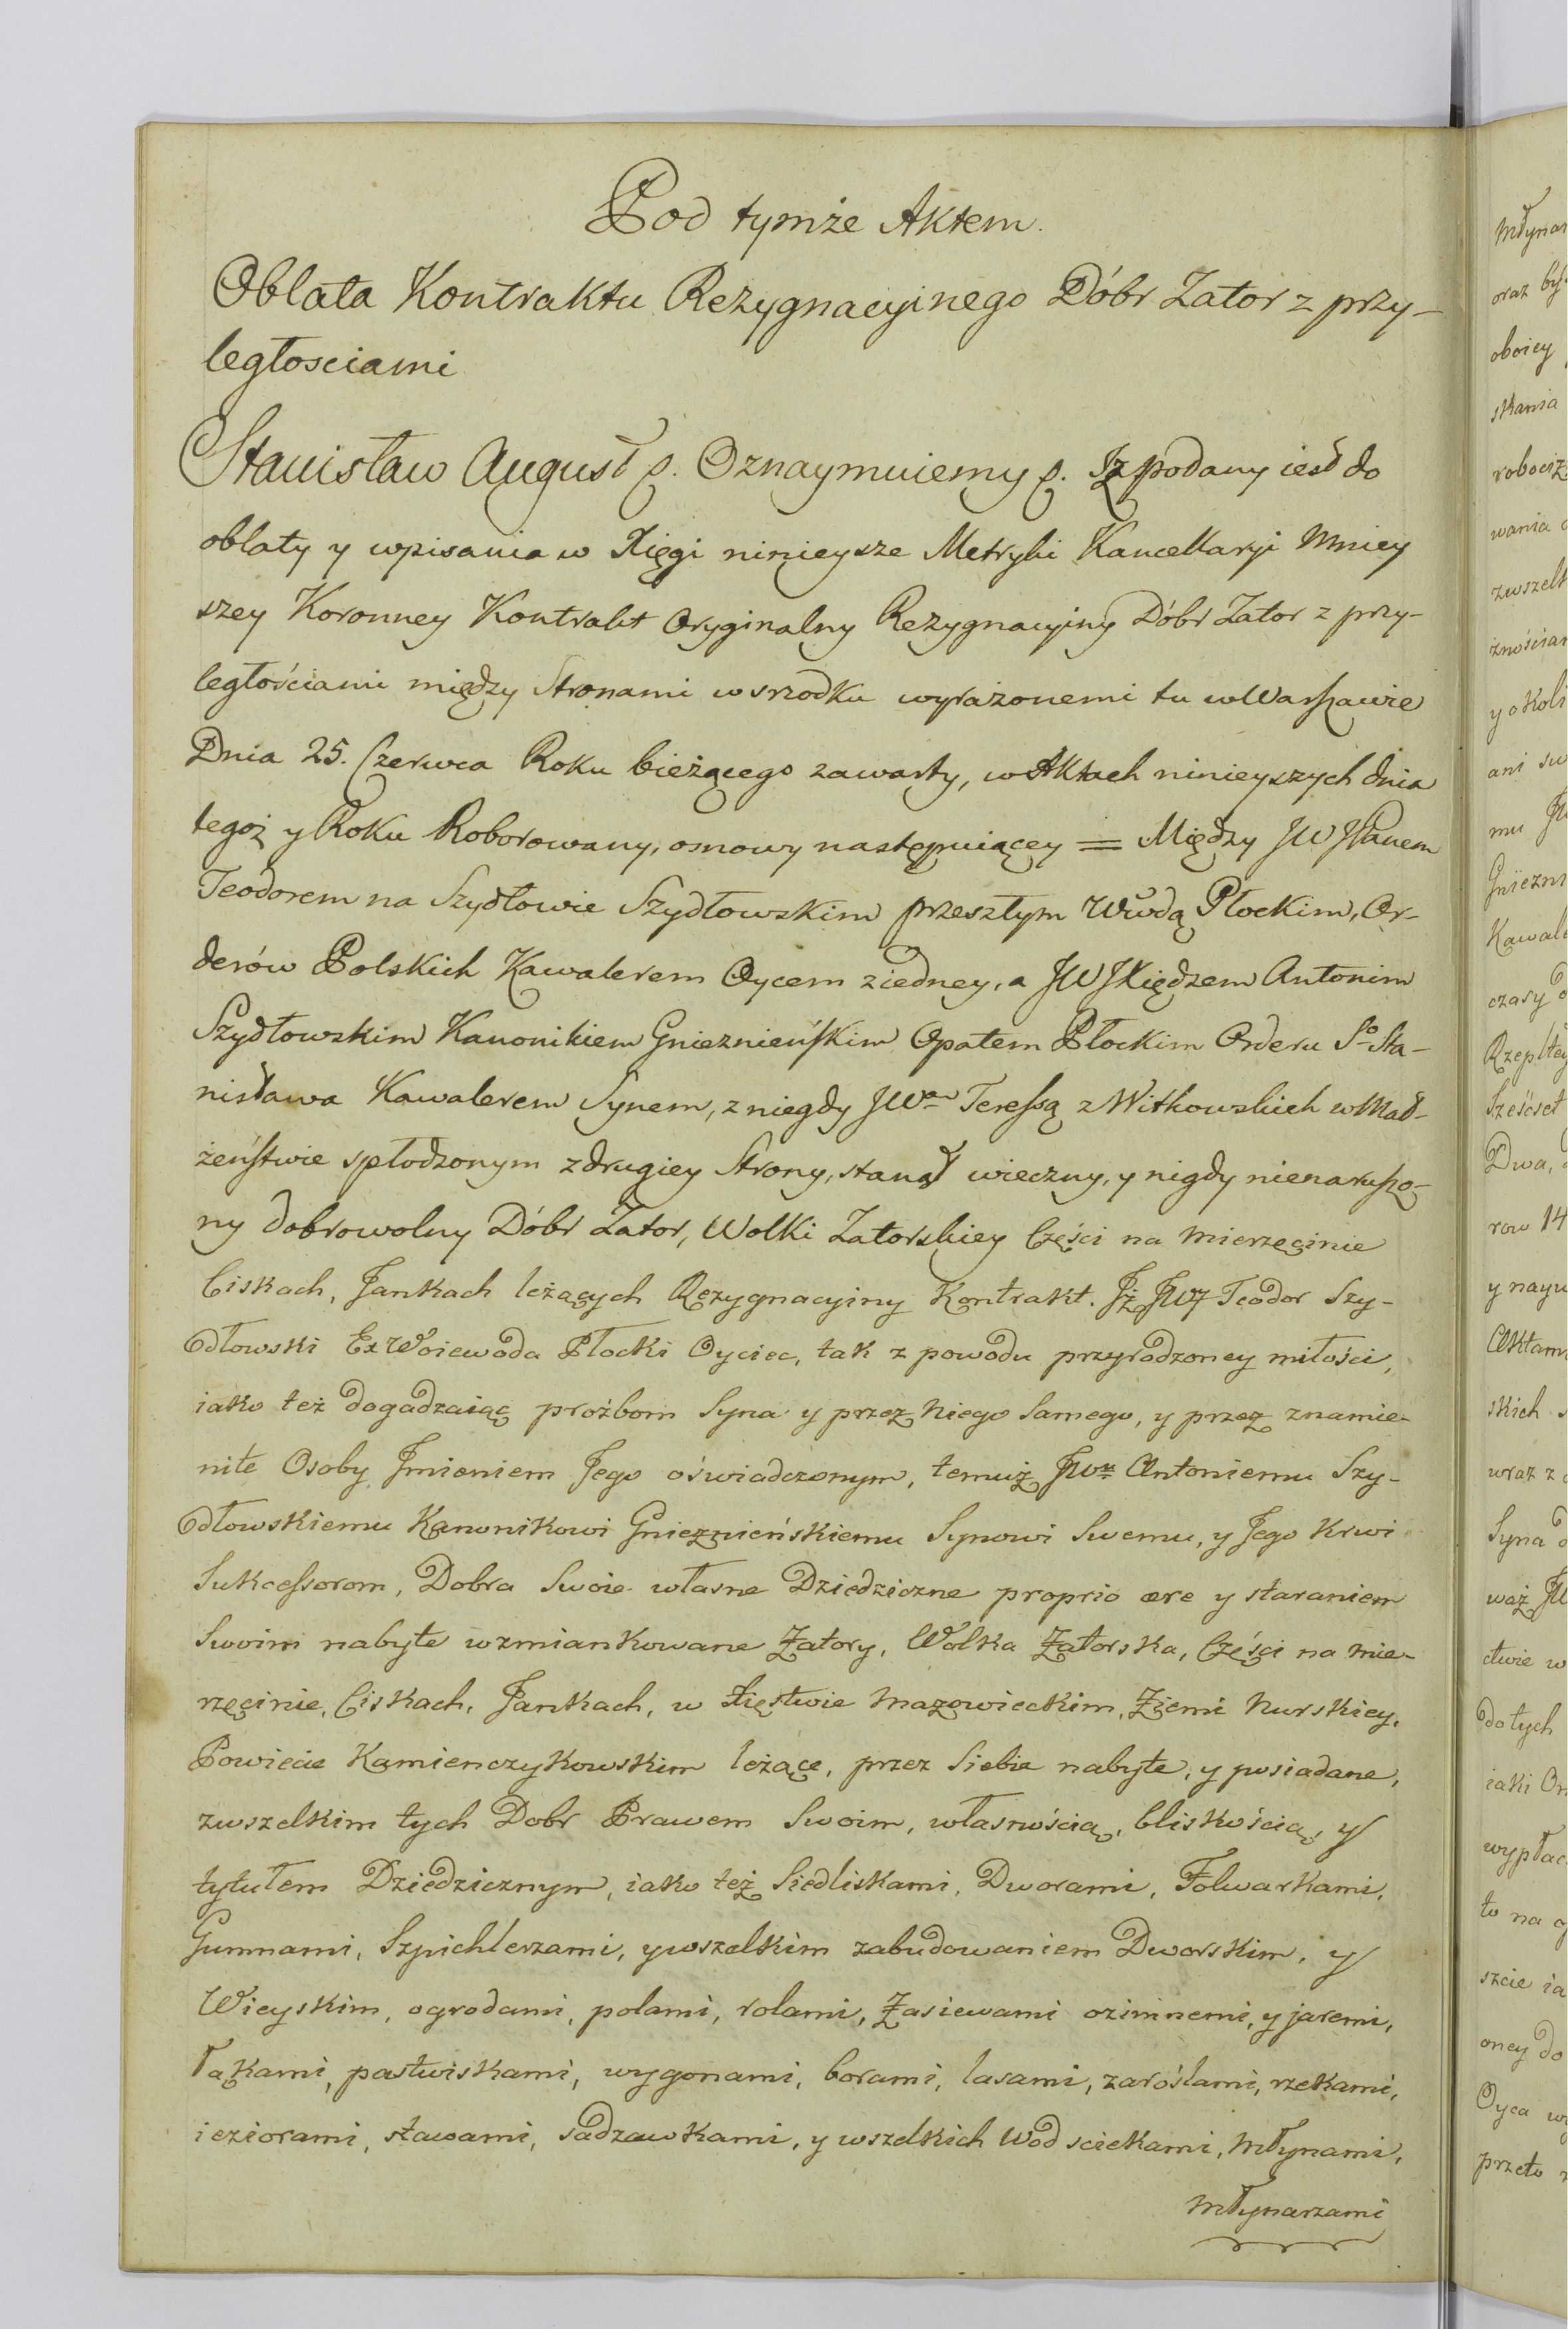 Pod tymże Aktem.
Oblata Kontraktu Rezygnacyinego Dóbr Zator z przy-
ległosciami
Stanisław August p. Oznaymuiemy p. Iz podany iest do
oblaty y wpisania w Xięgi ninieysze Metryki Kancellaryi Mniey
szey Koronney Kontrakt Oryginalny Rezygnacyiny Dóbr Zator z przy-
ległościami między Stronami w srzodku wyrażonemi tu w Warszawie
Dnia 25. Czerwca Roku bieżącego zawarty, w Aktach ninieyszych dnia
tegoż y Roku Roborowany, osnowy następuiącey = Między JW JPanem
Teodorem na Szydłowie Szydłowskim przeszłym Wwdą Płockim, Or-
derów Polskich Kawalerem Oycem z iedney, a JW JXiędzem Antonim
Szydłowskim Kanonikiem Gnieznieńskim Opatem Płockim Orderu So Sta-
nisława Kawalerem Synem, z niegdy JWą Teressą z Witkowskich w Mał-
żeństwie spłodzonym z drugiey Strony, stanął wieczny, y nigdy nienaruszo-
ny dobrowolny Dóbr Zator, Wolki Zatorskiey Części na Mierzęcinie
Ciskach, Jankach leżących Rezygnacyiny Kontrakt. Iż JWJ Teodor Szy-
dłowski ExWoiewoda Płocki Oyciec, tak z powodu przyrodzoney miłości,
iako też dogadzaiąc proźbom Syna y przez Niego Samego, y przez znamie-
nite Osoby Jmieniem Jego oświadczonym, temuż JWu Antoniemu Szy-
dłowskiemu Kanonikowi Gnieznieńskiemu Synowi Swemu, y Jego Krwi
Sukcessorom, Dobra Swoie własne Dziedziczne proprio ære y staraniem
Swoim nabyte wzmiankowane Zatory, Wolka Zatorska, Części na Mie-
rzęcinie, Ciskach, Jankach, w Xięstwie Mazowieckim, Ziemi Nurskiey,
Powiecie Kamienczykowskim leżące, przez Siebie nabyte, y posiadane,
zwszelkim tych Dobr Prawem Swoim, własnością, bliskością, y
tytułem Dziedzicznym, iako też Siedliskami, Dworami, Folwarkami,
Gumnami, Szpichlerzami, y wszelkim zabudowaniem Dworskim, y
Wieyskim, ogrodami, polami, rolami, Zasiewami ozimnemi, y jaremi,
łąkami, pastwiskami, wygonami, borami, lasami, zaroślami, rzekami,
ieziorami, stawami, sadzawkami, y wszelkich wod sciekami, Młynami,
Młynarzami